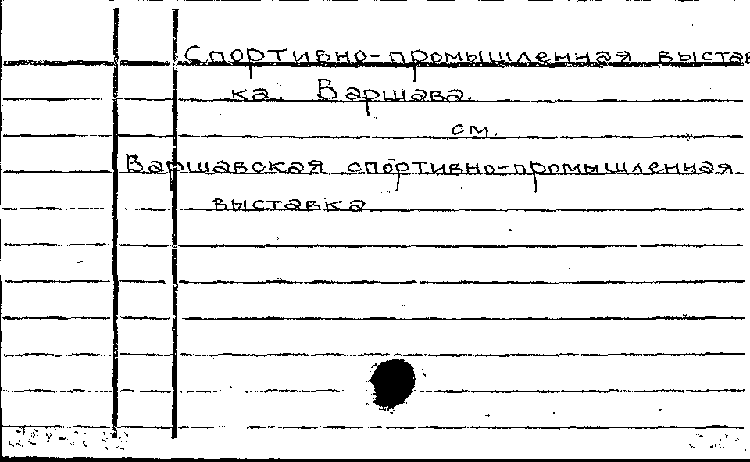 Спортивно-промышленная выстав
ка. Варшава.
см.
Варшавская спортивно-промышленная
выставка